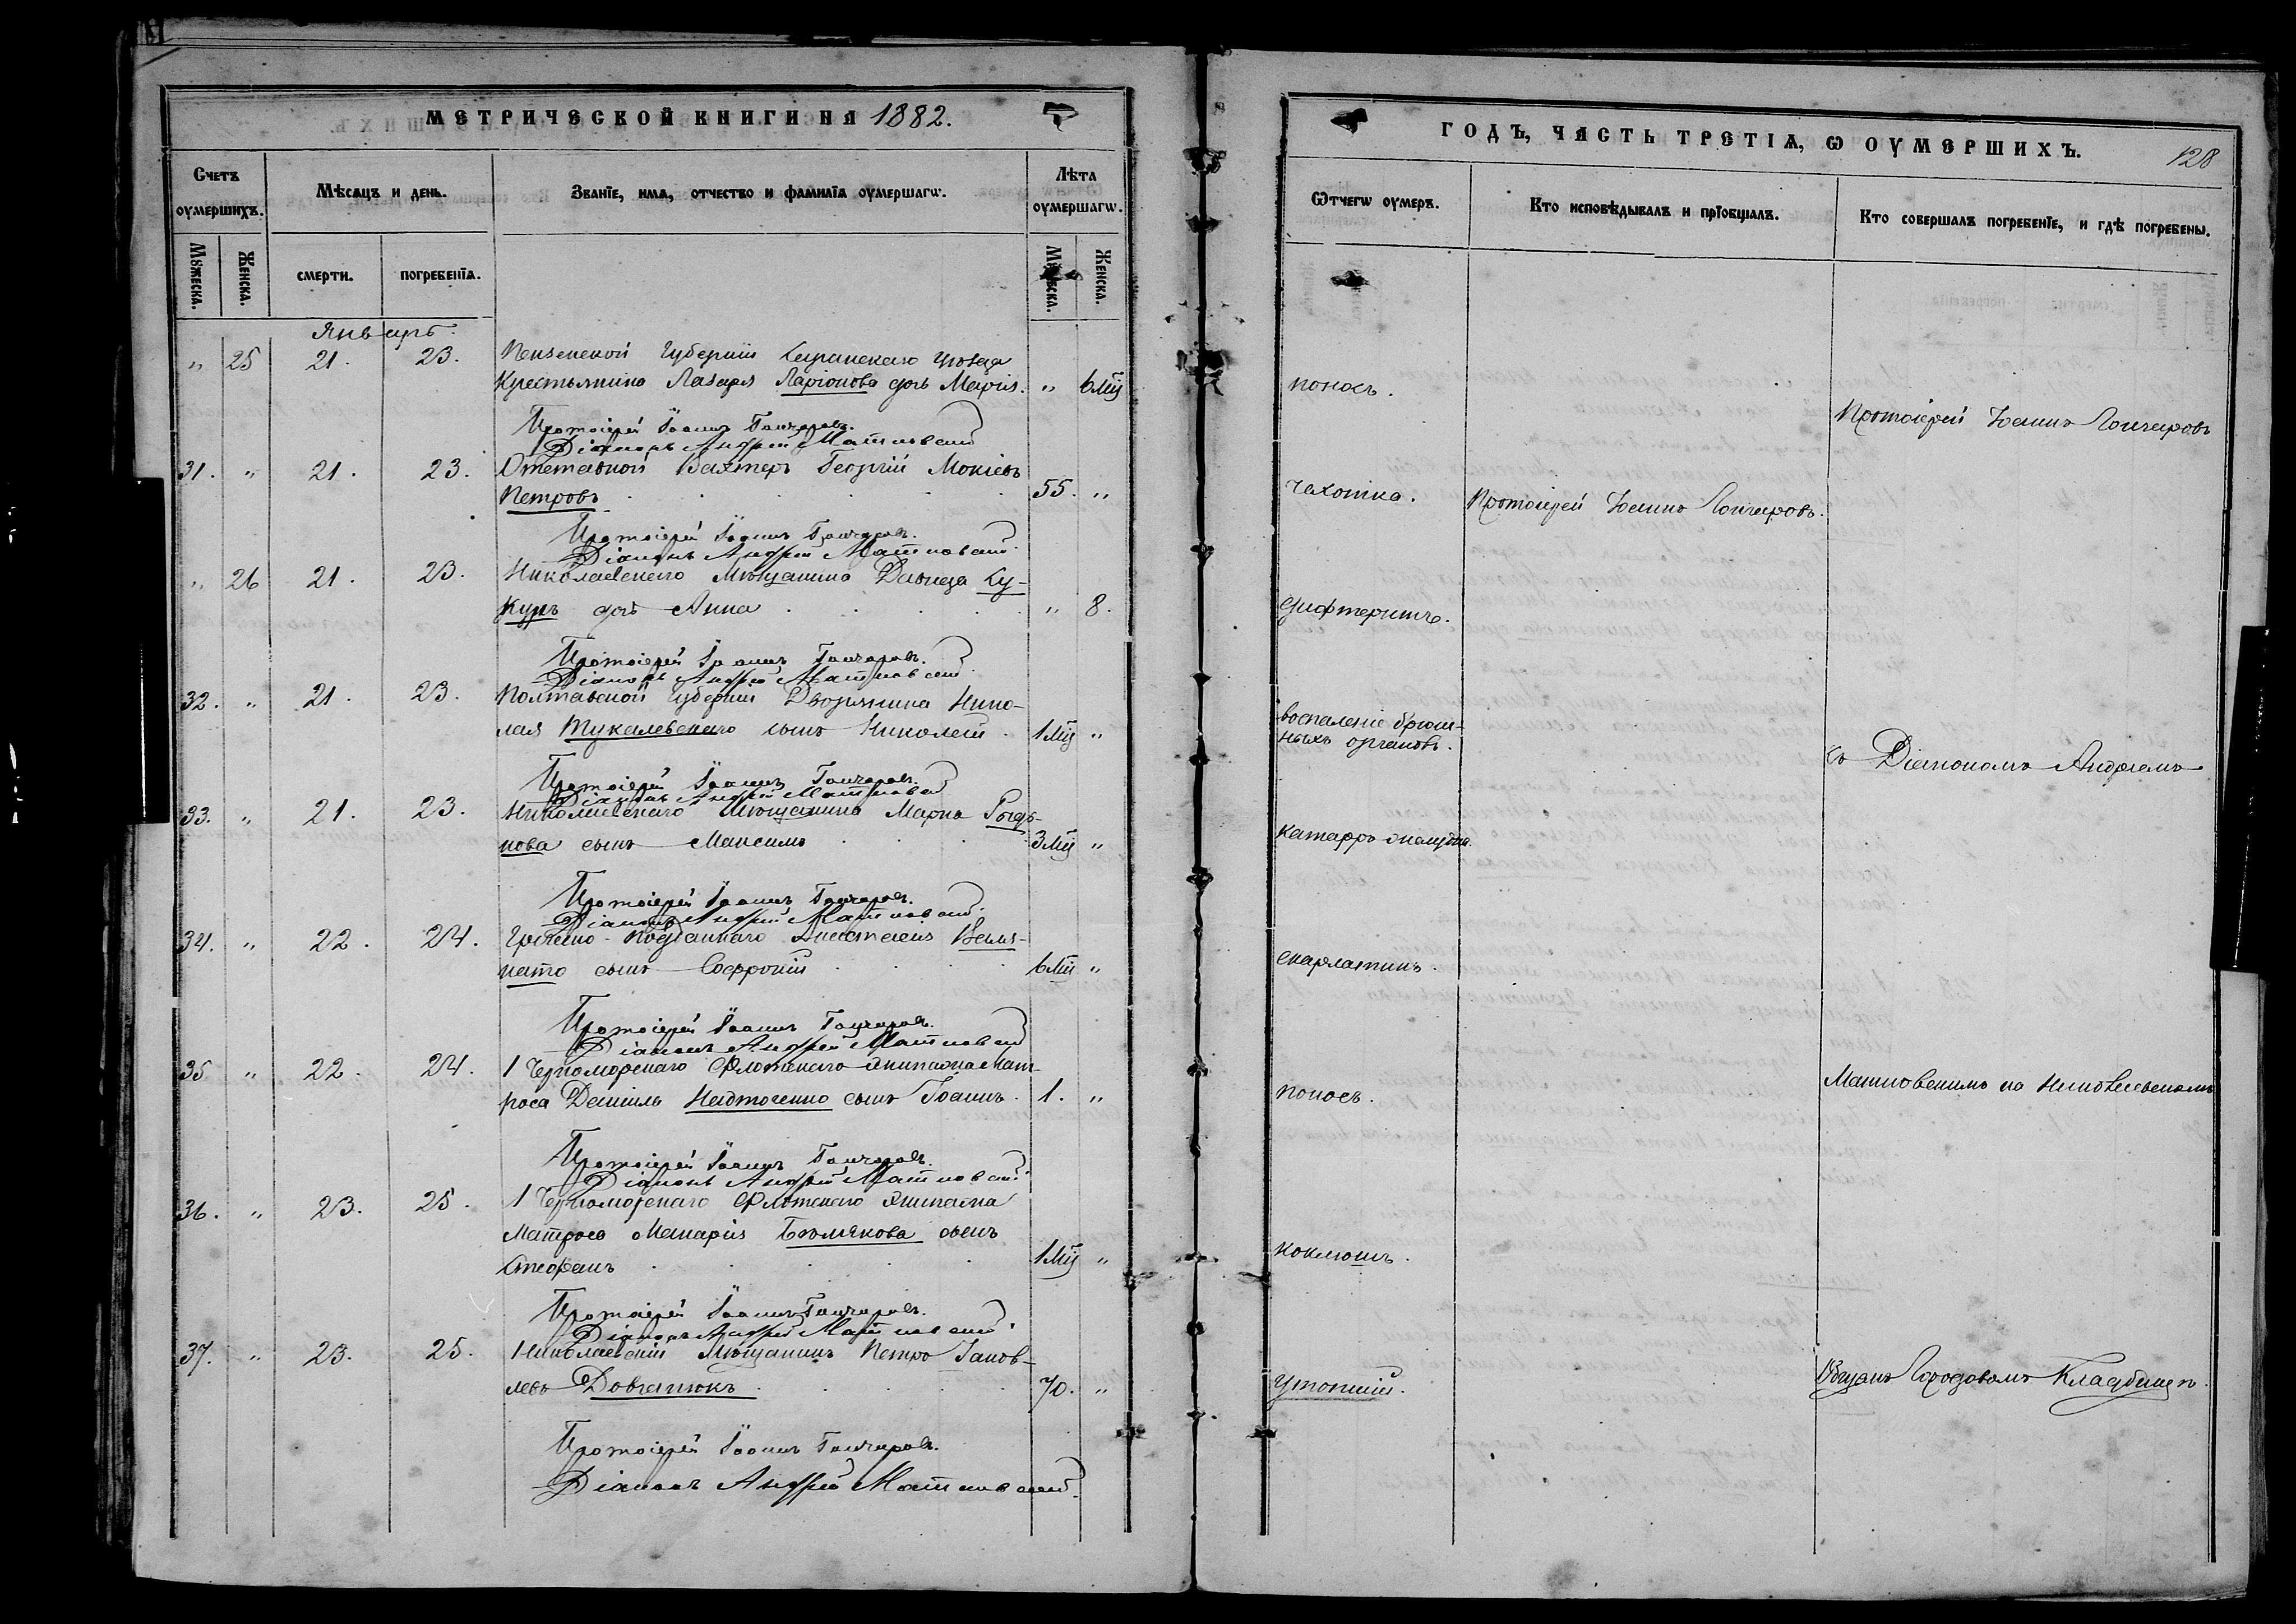 МЕТРИЧЕСКОЙ КНИГИ НА 1882.
Счетъ оумершихъ.
Мѣсяцъ и день.
Званіе, имя, отчество и фамилія оумершагѡ.
Лѣта оумершагѡ.
Мꙋжеска.
Женска.
смерти.
погребенія.
Мꙋжеска.
Женска.
Январь.
" 25 21. 23. Пензенской Губерніи Саранскаго уѣзда
Крестьянина Лазаря Ларіонова дочь Марія. " 6 Мц
Протоіерей Іоаннъ Гончаровъ.
Діаконъ Андрей Матковскій
31. " 21. 23. Отставной Вахтеръ Георгій Мокіевъ
Петровъ 55. "
Протоіерей Іоаннъ Гончаровъ.
Діаконъ Андрей Матковскій
" 26 21. 23. Николаевскаго Мѣщанина Давида Ку-
куръ дочь Анна " 8.
Протоіерей Іоаннъ Гончаровъ.
Діаконъ Андрей Матковскій
32. " 21. 23. Полтавской Губерніи Дворянина Нико-
лая Тукалевскаго сынъ Николай 1 Мц "
Протоіерей Іоаннъ Гончаровъ.
Діаконъ Андрей Матковскій
33. " 21. 23. Николаевскаго Мѣщанина Марка
сынъ Максимъ 3 Мц "
Протоіерей Іоаннъ Гончаровъ.
Діаконъ Андрей Матковскій
34. " 22. 24. Греческо-подданнаго Анастасія
сынъ Софроній 6 Мц "
Протоіерей Іоаннъ Гончаровъ.
Діаконъ Андрей Матковскій
35 " 22. 24. 1 Черноморскаго Флотскаго экипажа Мат-
роса Даніила Надточенко сынъ Іоаннъ. 1. "
Протоіерей Іоаннъ Гончаровъ.
Діаконъ Андрей Матковскій
36. " 23. 25. 1 Черноморскаго Флотскаго экипажа
Матроса Макарія сынъ
Стефанъ 1 Мц "
Протоіерей Іоаннъ Гончаровъ.
Діаконъ Андрей Матковскій
37. " 23. 25. Николаевскій Мѣщанинъ Петръ Іаков-
левъ Довганюкъ 70. "
Протоіерей Іоаннъ Гончаровъ.
Діаконъ Андрей Матковскій
ГОДЪ, ЧАСТЬ ТРЕТІѦ, Ѡ ОУМЕРШИХЪ.
128
Ѿчегѡ оумеръ.
Кто исповѣдывалъ и пріобщалъ.
Кто совершалъ погребеніе, и гдѣ погребены.
поносъ.
Протоіерей Іоаннъ Гончаровъ
чахотка.
Протоіерей Іоаннъ Гончаровъ.
дифтеритъ.
воспаленіе брюш-
ныхъ органовъ.
съ Діакономъ Андреемъ
катарръ желудка.
скарлатинъ.
поносъ.
Матковскимъ на Николаевскомъ
коклюшъ.
утопшій.
Общемъ Городовомъ Кладбищѣ.